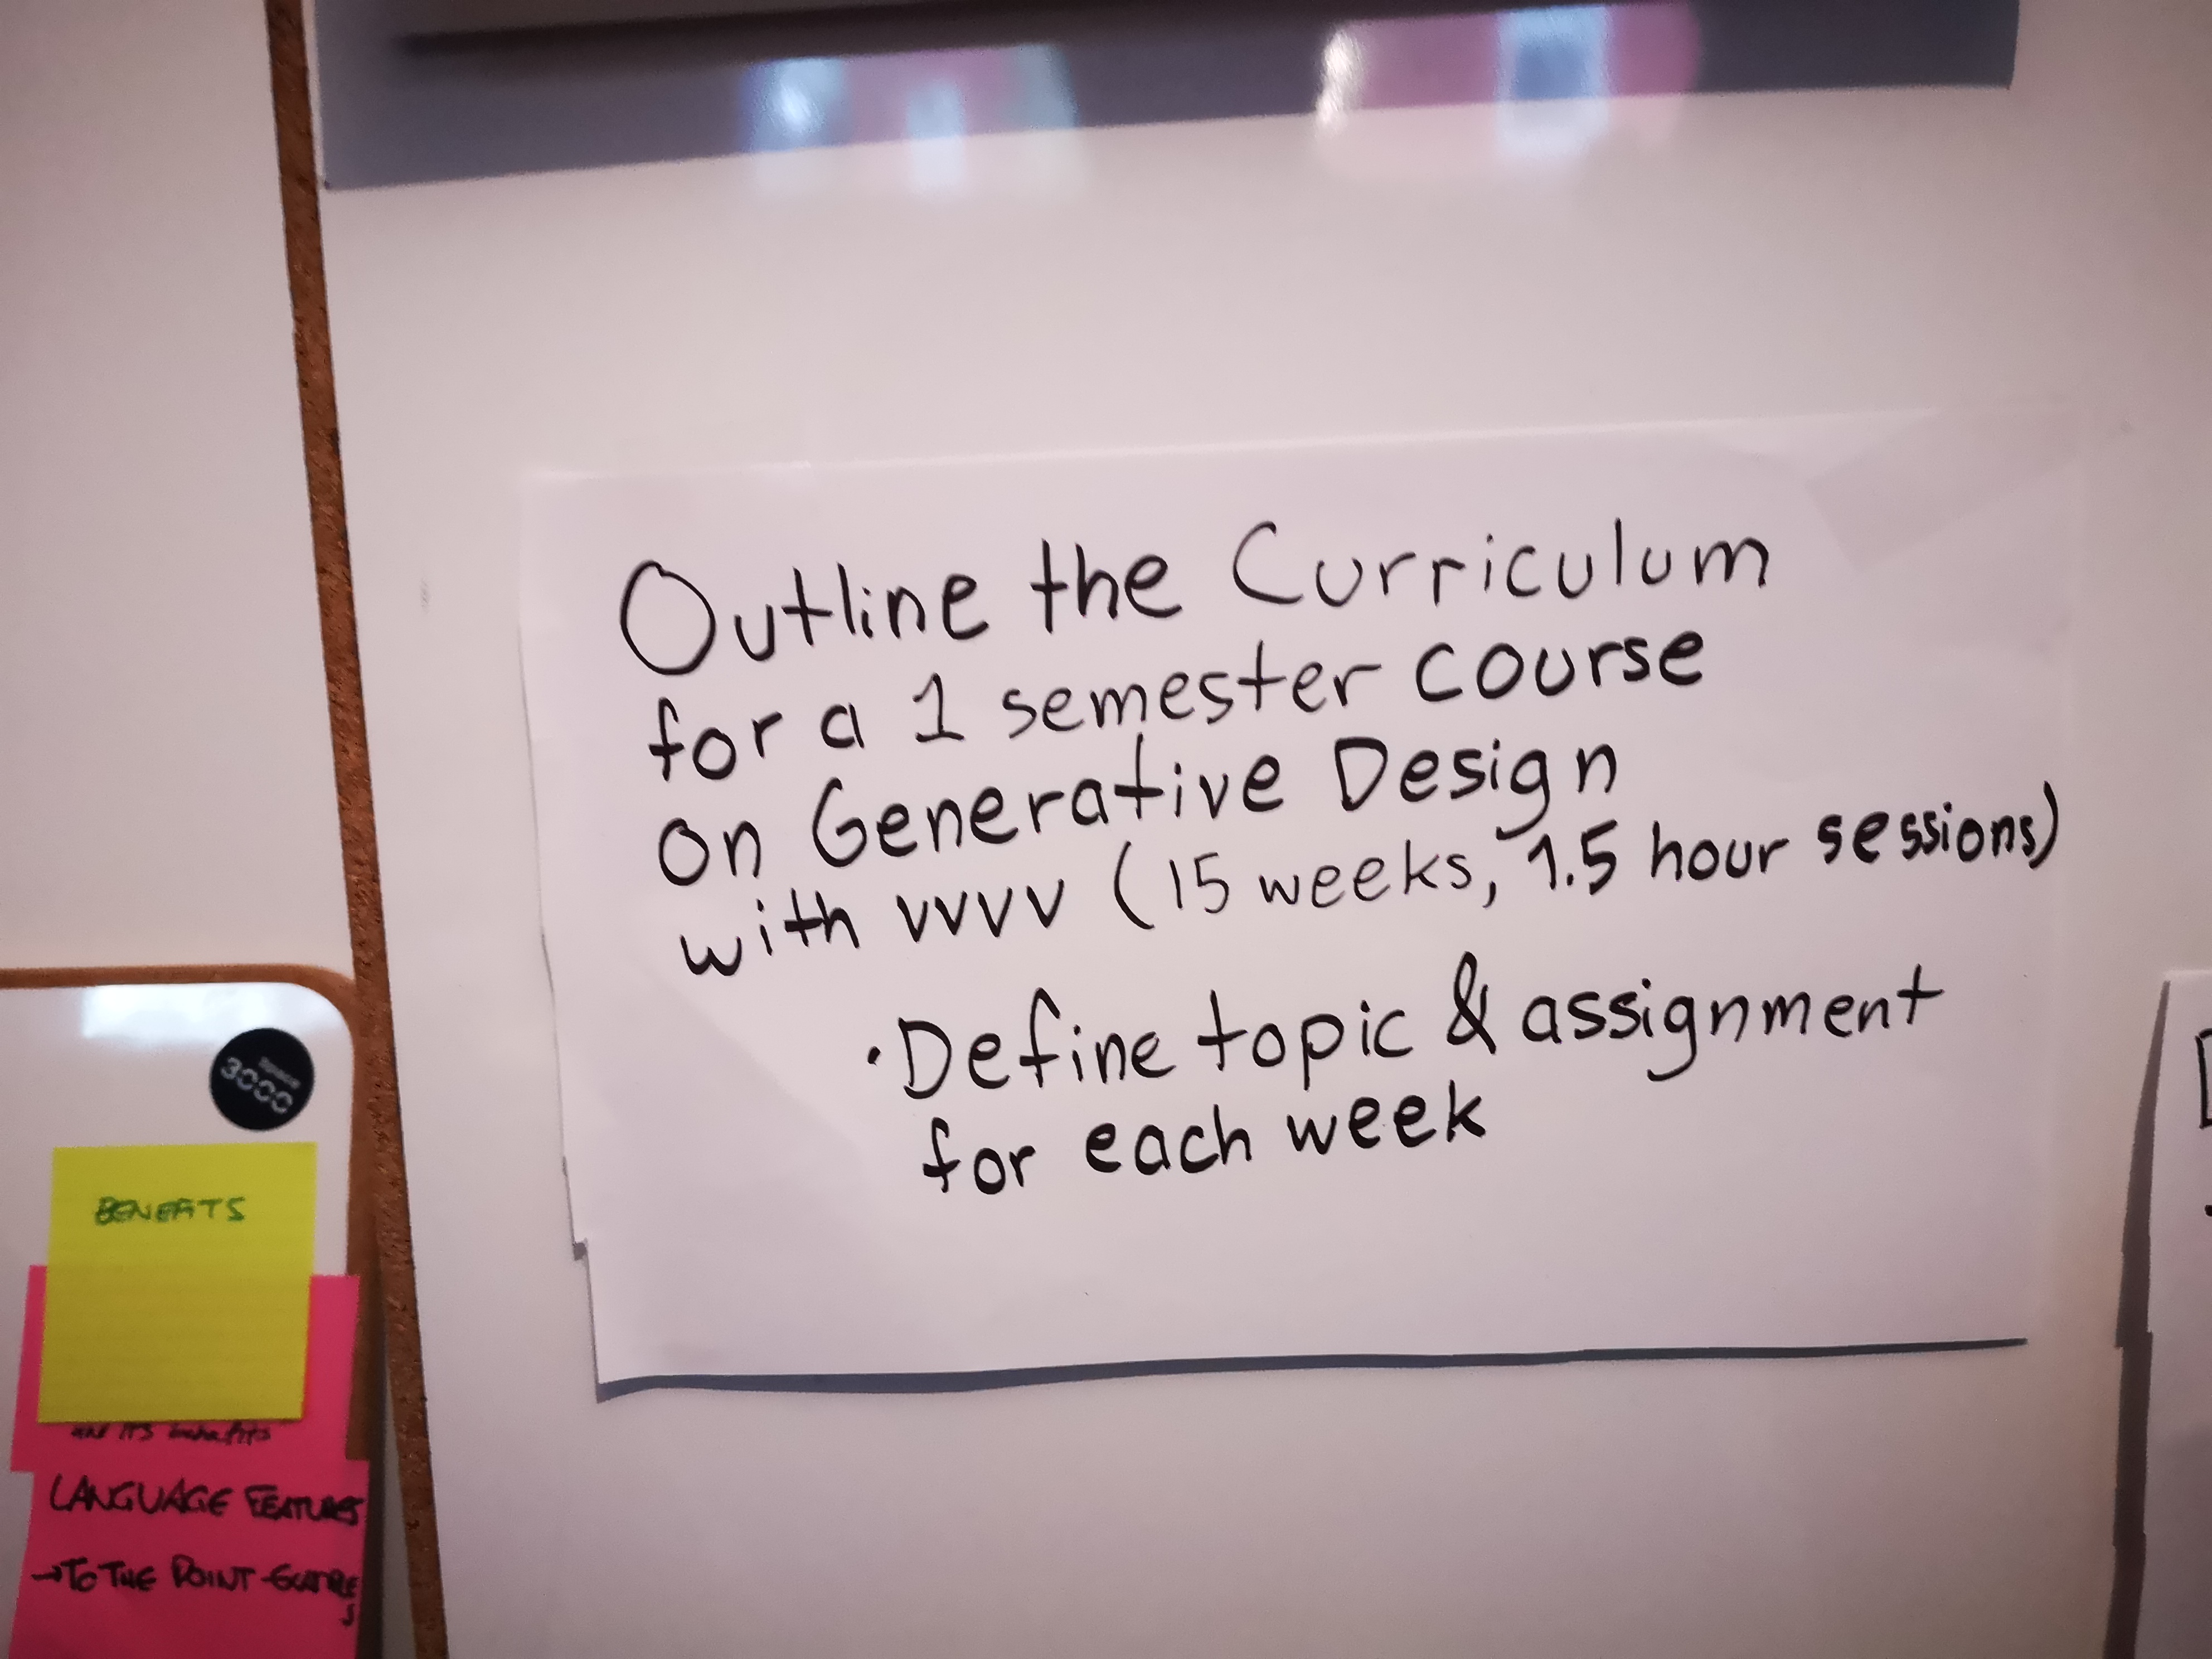 Outline the Curriculum
for a 1 semester course
on Generative Design
with vvvv (15 weeks, 1.5 hour sessions)
• Define topic & assignment
for each week
space
3000
BENEFITS
ITS benefits
LANGUAGE FEATURES
→TO THE POINT